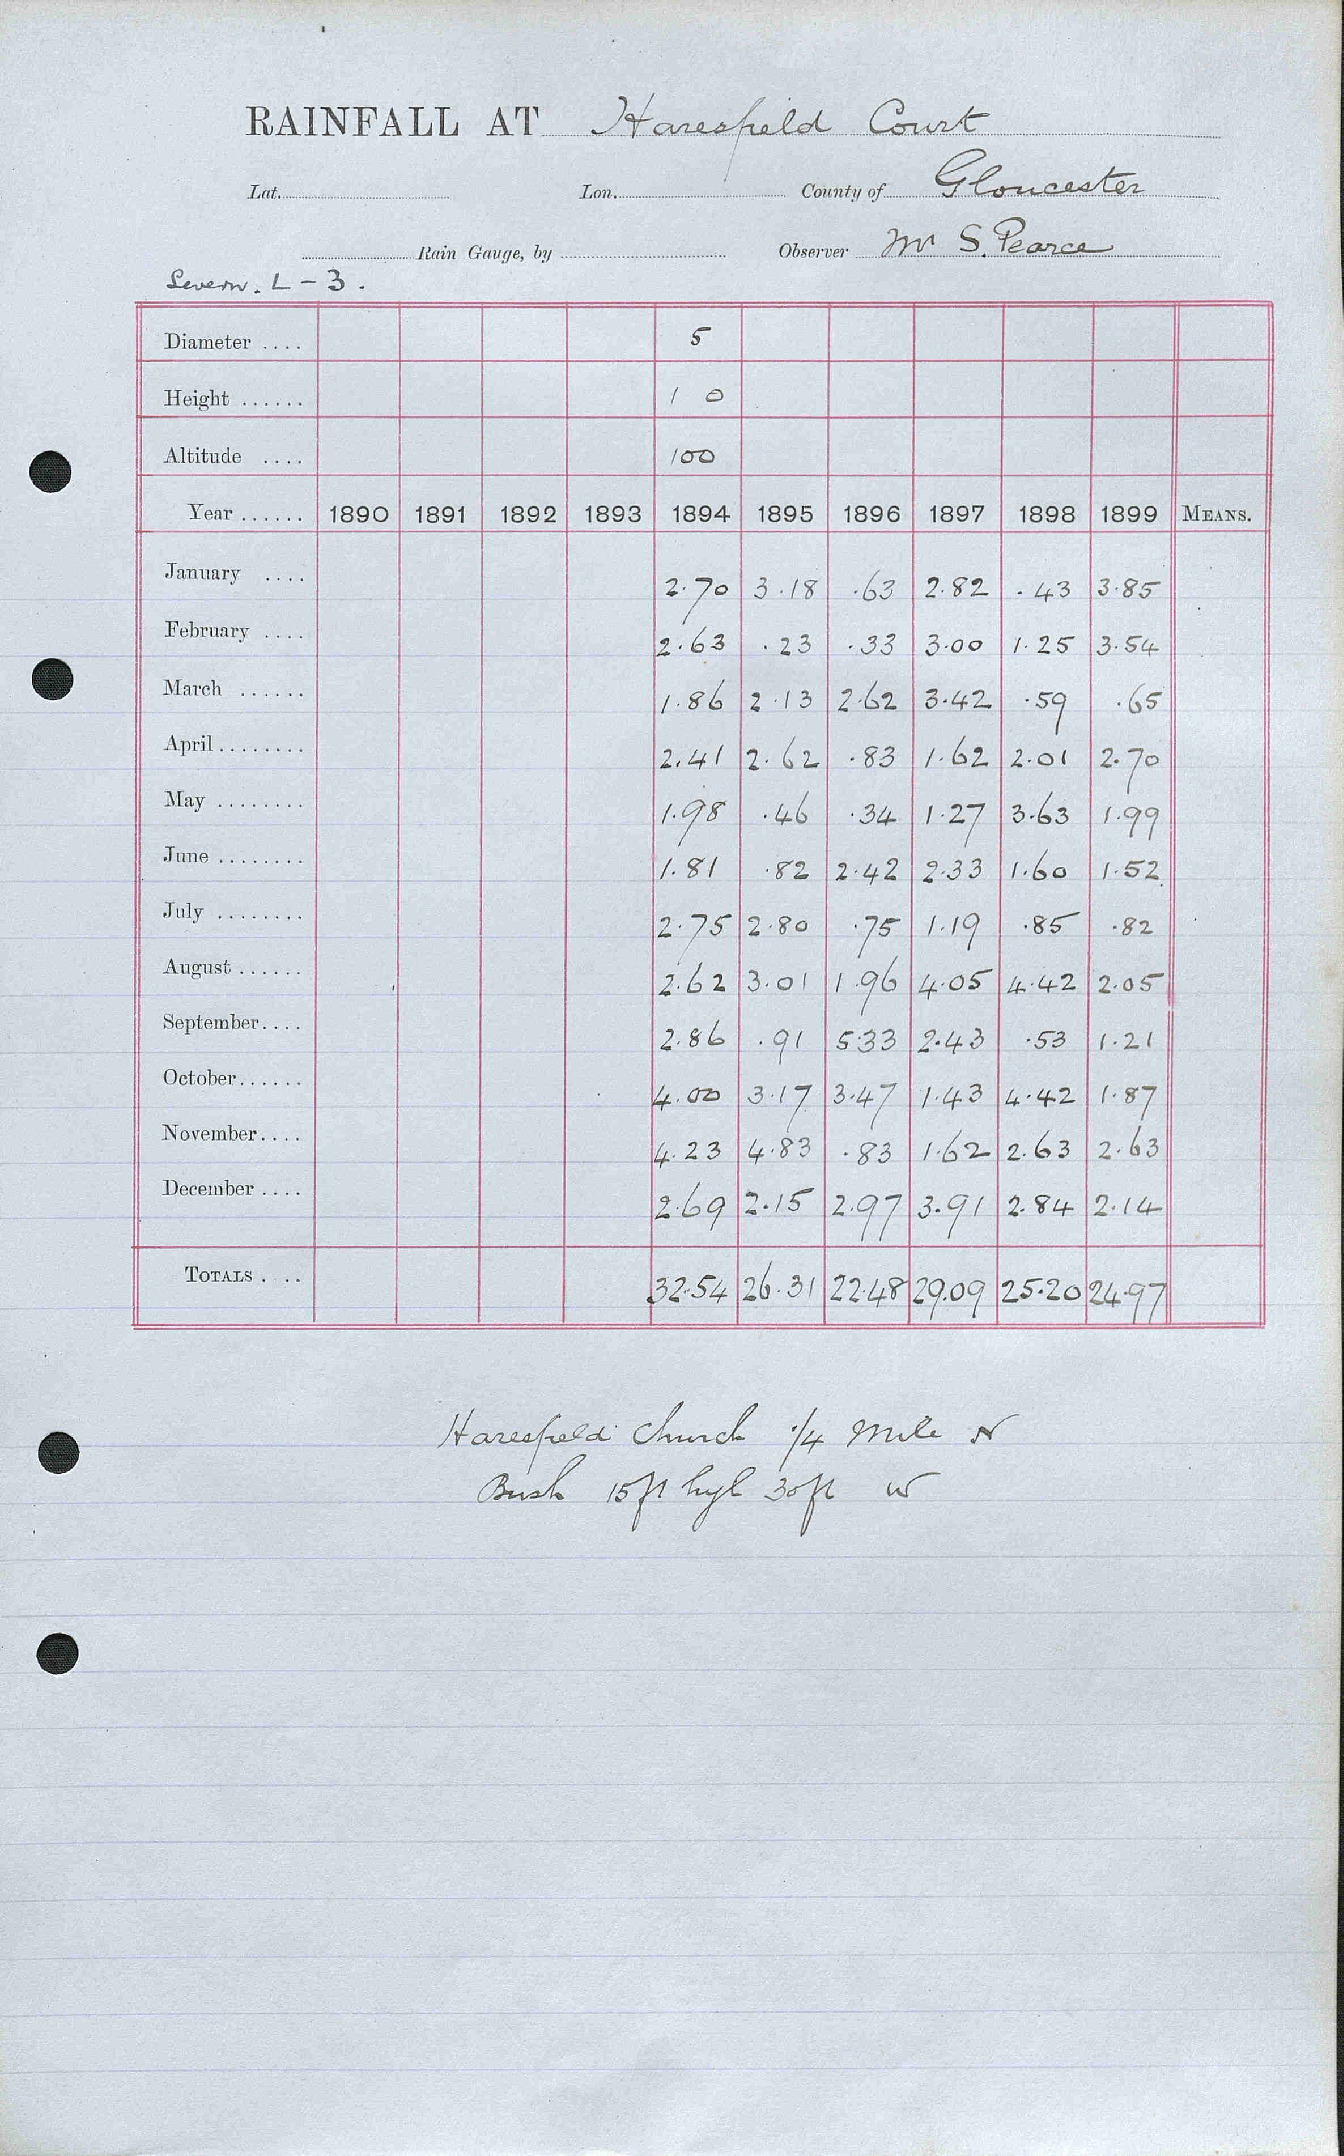 RAINFALL AT Haresfield Court
Lat. Lon. County of Gloucester
Rain Gauge, by Observer Mr S. Pearce
Severn. L - 3.
Diameter .... 5
Height ...... 1 0
Altitude .... 100
Year ...... 1890 1891 1892 1893 1894 1895 1896 1897 1898 1899 MEANS.
January .... 2.70 3.18 .63 2.82 .43 3.85
February .... 2.63 .23 .33 3.00 1.25 3.54
March ...... 1.86 2.13 2.62 3.42 .59 .65
April ........ 2.41 2.62 .83 1.62 2.01 2.70
May ........ 1.98 .46 .34 1.27 3.63 1.99
June ........ 1.81 .82 2.42 2.33 1.60 1.52
July ........ 2.75 2.80 .75 1.19 .85 .82
August ...... 2.62 3.01 1.96 4.05 4.42 2.05
September.... 2.86 .91 5.33 2.43 .53 1.21
October...... 4.00 3.17 3.47 1.43 4.42 1.87
November.... 4.23 4.83 .83 1.62 2.63 2.63
December .... 2.69 2.15 2.97 3.91 2.84 2.14
TOTALS .... 32.54 26.31 22.48 29.09 25.20 24.97
Haresfield Church 1/4 Mile N
Bush 15ft high 30ft W